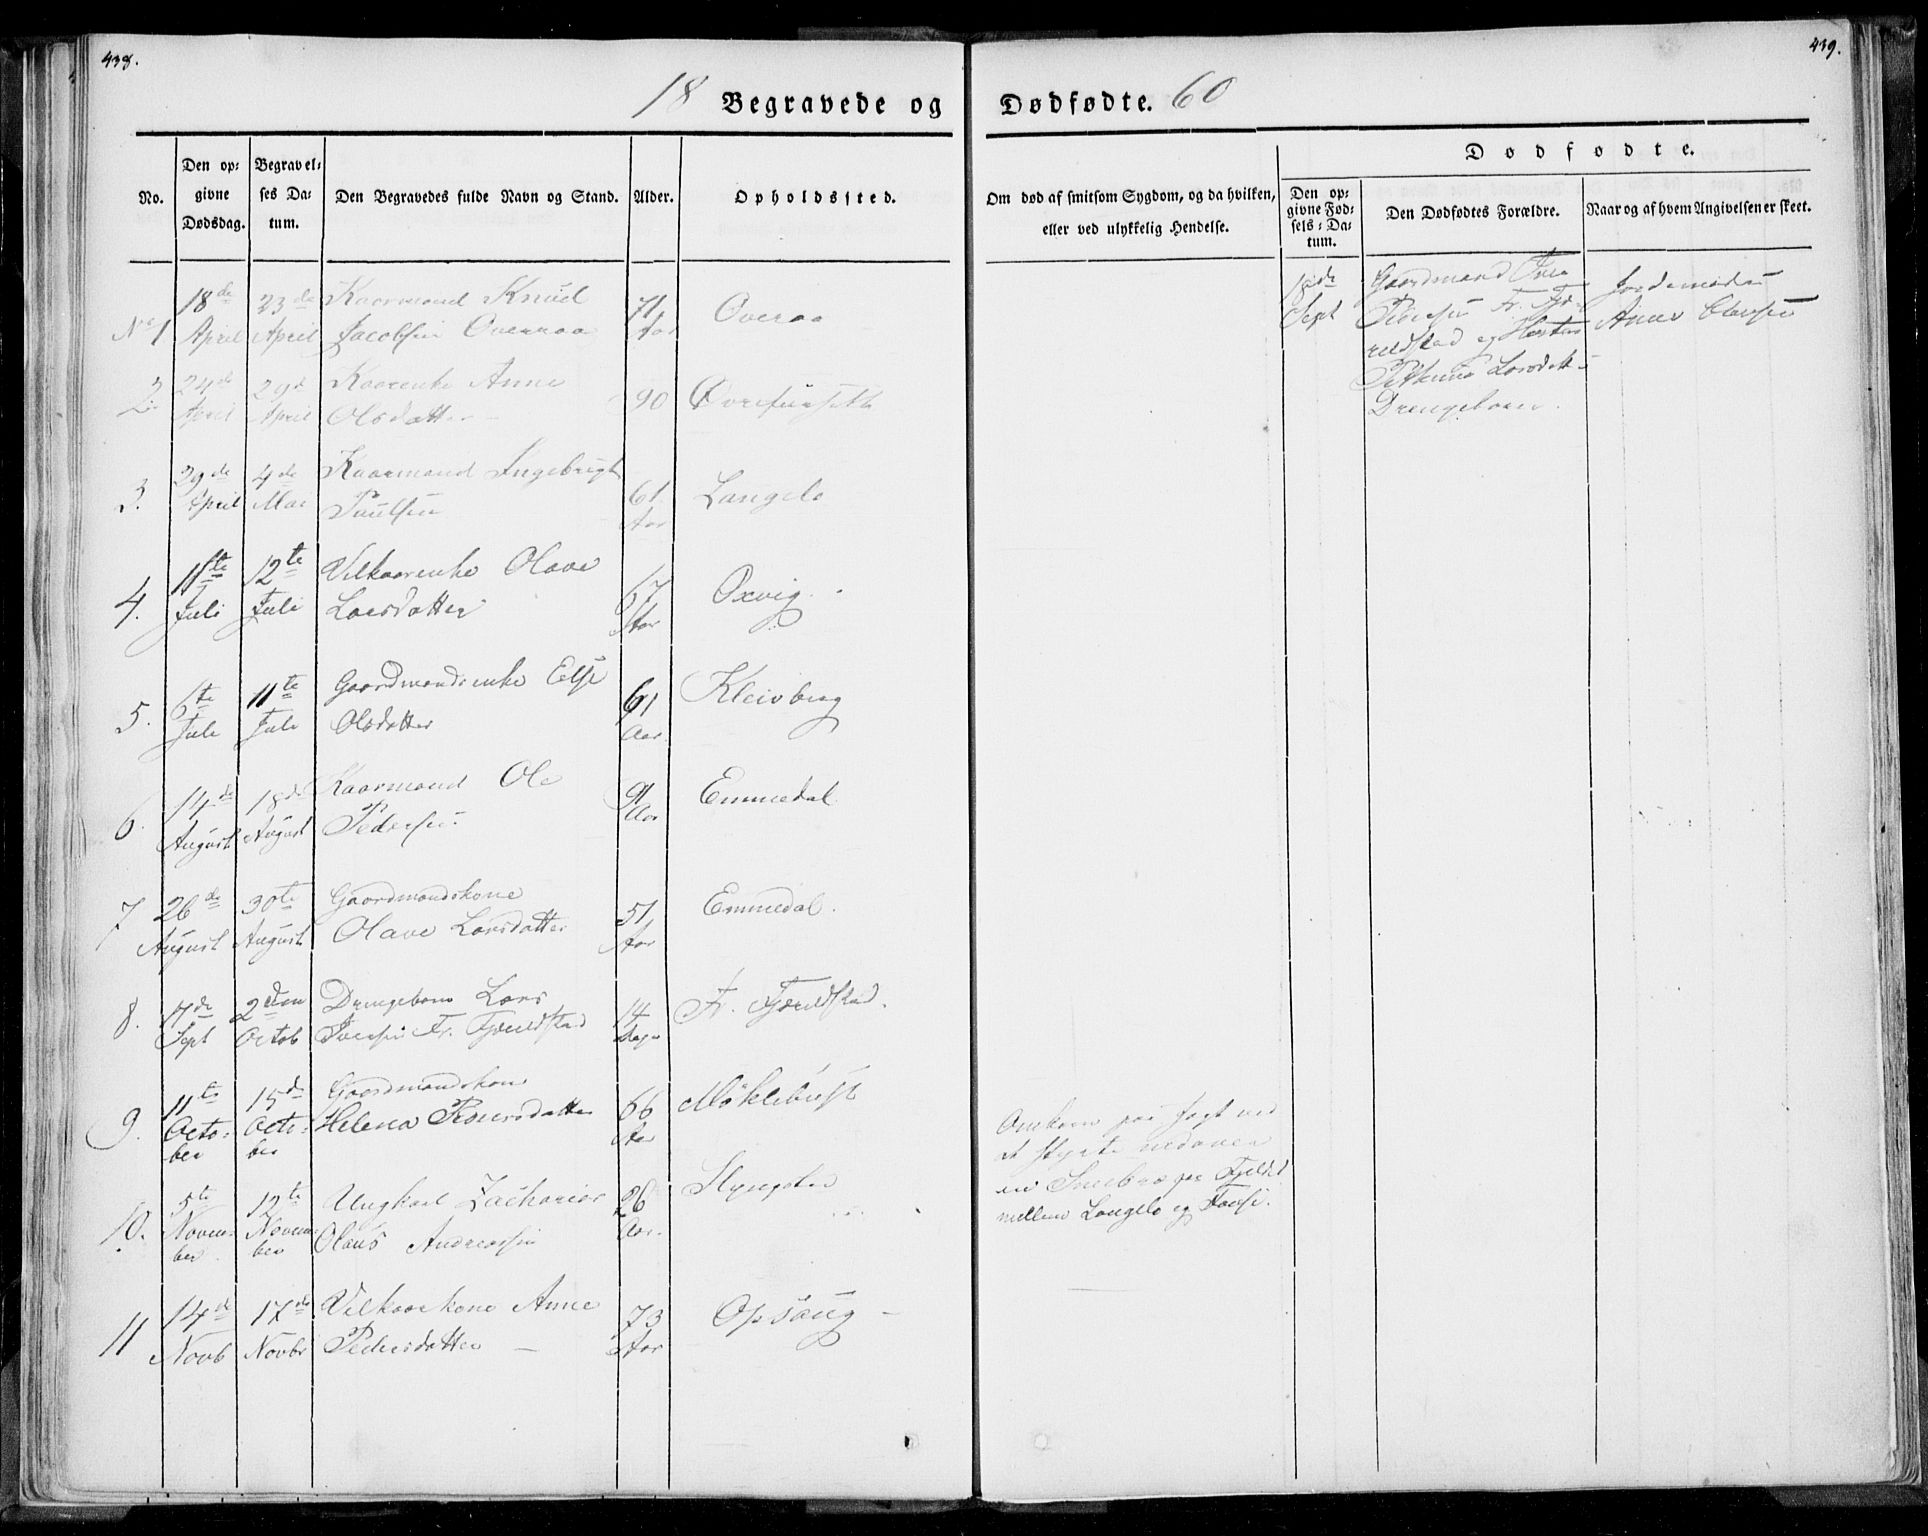 438.
439.
18 Begravede og Dødfødte. 60
No.
Den op-
givne
Dødsdag.
Begravel-
ses Da-
tum.
Den Begravedes fulde Navn og Stand.
Alder.
Opholdssted.
Om død af smitsom Sygdom, og da hvilken,
eller ved ulykkelig Hendelse.
Dødfødte.
Den op-
givne Fød-
sels-Da-
tum.
Den Dødfødtes Forældre.
Naar og af hvem Angivelsen er skeet.
No 1
18de April
23de April
Kaarmand Knud
Jacobsen Overaa
71 Aar
Overaa
2.
24de April
29d April
Kaarenke Anne
Olsdatter
90
3.
29de April
4de Mai
Kaarmand Ingebrigt
Paulsen
61 Aar
Langelo
4.
11te Juli
12te Juli
Vilkaarenke Olave
Larsdatter
67 Aar
Oxvig
5.
6te Juli
11te Juli
Gaardmandsenke Else
Olsdatter
61 Aar
Kleivberg
6.
14de August
18de August
Kaarmand Ole
Pedersen
91 Aar
Emmedal
7
26de August
30te August
Gaardmandskone
Olave Larsdatter
51 Aar
Emmedal.
8.
17de Sept
2den Octob
Drengebarn Lars
Iversen Fr. Fjærildstad
14 Dage
Fr. Fjærildstad.
9.
11te Octo-
ber
15de Octo-
ber
Gaardmandskone
Helena
66 Aar
Møklebust
10.
5te Novem-
ber
12te Novem-
ber
Ungkarl Zacharias
Olaus Andreassen
26 Aar.
Slyngstad
Omkom paa Jagt ved
at styrte nedover
en Snebræ paa Fjeldet
mellem Langelo og
11
14de Novb
17de Novbr
Vilkaarkone Anne
Pedersdatter
73 Aar
Opsaug
18de Sept
Gaardmand Iver
Fr. Fjæ-
rildstad og
Larsdatt
Drengebarn.
Jordemoder
Anne